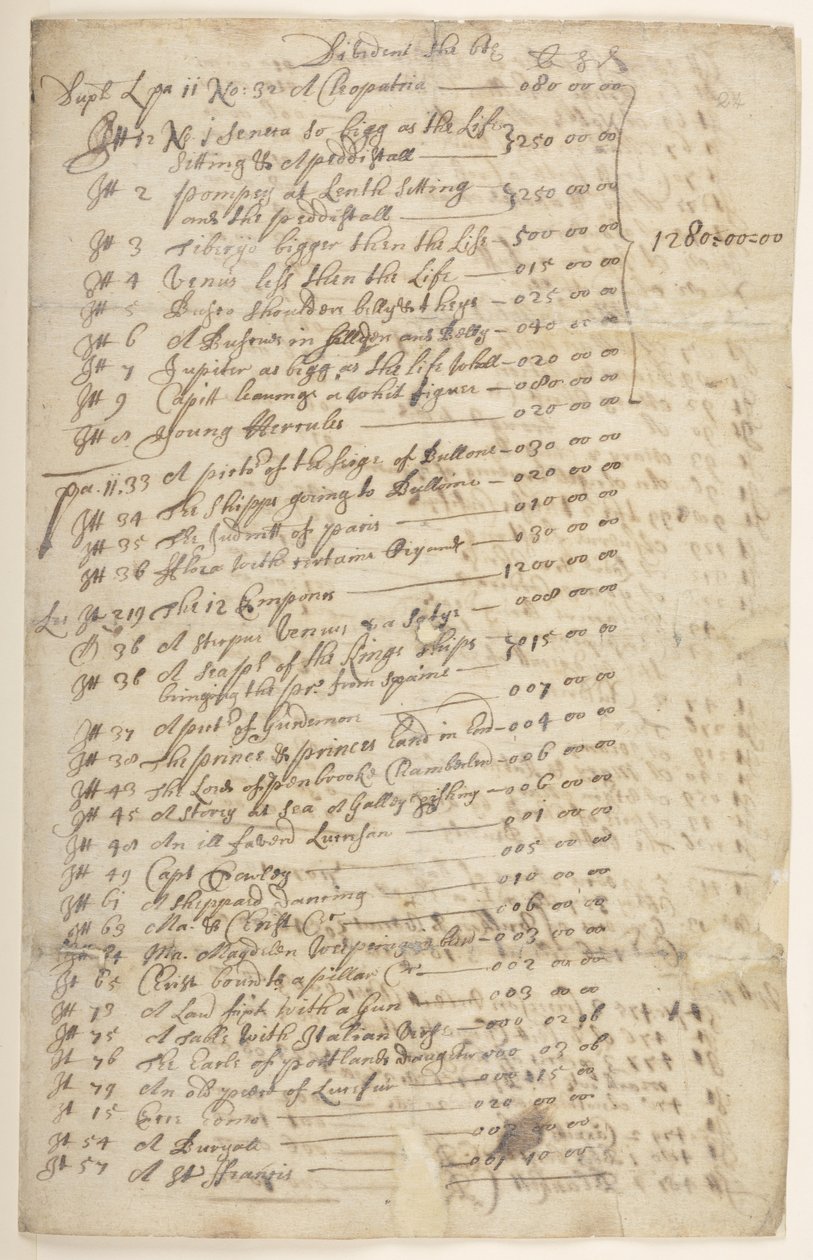 Divident the 6th £ s d
24
Supt L pa 11 No: 32 A Cleopatria 080 00 00
Itt 12 No. 1 Seneca so bigg as the Life
Sitting & A peddistall 250 00 00
Itt 2 Pompey at Lenth Sitting
and the peddistall 250 00 00
Itt 3 Tiberijo bigger then the Life 500 00 00
1280=00=00
Itt 4 Venus less then the Life 015 00 00
Itt 5 Busto Shoulders belly & theys 025 00 00
Itt 6 A Busto in and Belly 040 00 00
Itt 7 Jupiter as bigg as the life Wholl 020 00 00
Itt 9 Capitt leaninge a Whit figuer 080 00 00
Itt 8 Young Hercules 020 00 00
pa. 11. 33 A pictr of the seige of Bullone 030 00 00
Itt 34 The Shipps going to Bulloine 020 00 00
Itt 35 The Judmtt of paris 010 00 00
Itt 36 fflora With certaine 030 00 00
219 The 12 Emporers 1200 00 00
36 A Venus & a Satyr 008 00 00
Itt 36 A Seaspt of the Kings Ships
bringing the pr. from Spaine 015 00 00
Itt 37 A pict of Gundemor 007 00 00
Itt 38 The prince & princes Eand in End 004 00 00
Itt 43 The Lord of penbrooke Chamberlen 006 00 00
Itt 45 A Storey at Sea A Galley fishing 006 00 00
Itt 48 An ill faverd 001 00 00
Itt 49 Capt 005 00 00
Itt 61 A Sheppard Dancing 010 00 00
Itt 63 Ma. & Crist Cr 006 00 00
Itt 64 Ma. Magdelen Weepering 003 00 00
It 65 Christ bound to a pillar Cr 002 00 00
Itt 73 A Land With a Gun 003 00 00
Itt 75 A Table With Italian Verse 000 02 06
It 76 The Earle of portlands daughter 000 03 06
It 79 An old peece of 000 15 00
It 15 020 00 00
It 54 A Buryall 00 00
It 57 A St ffrancis 001 10 00